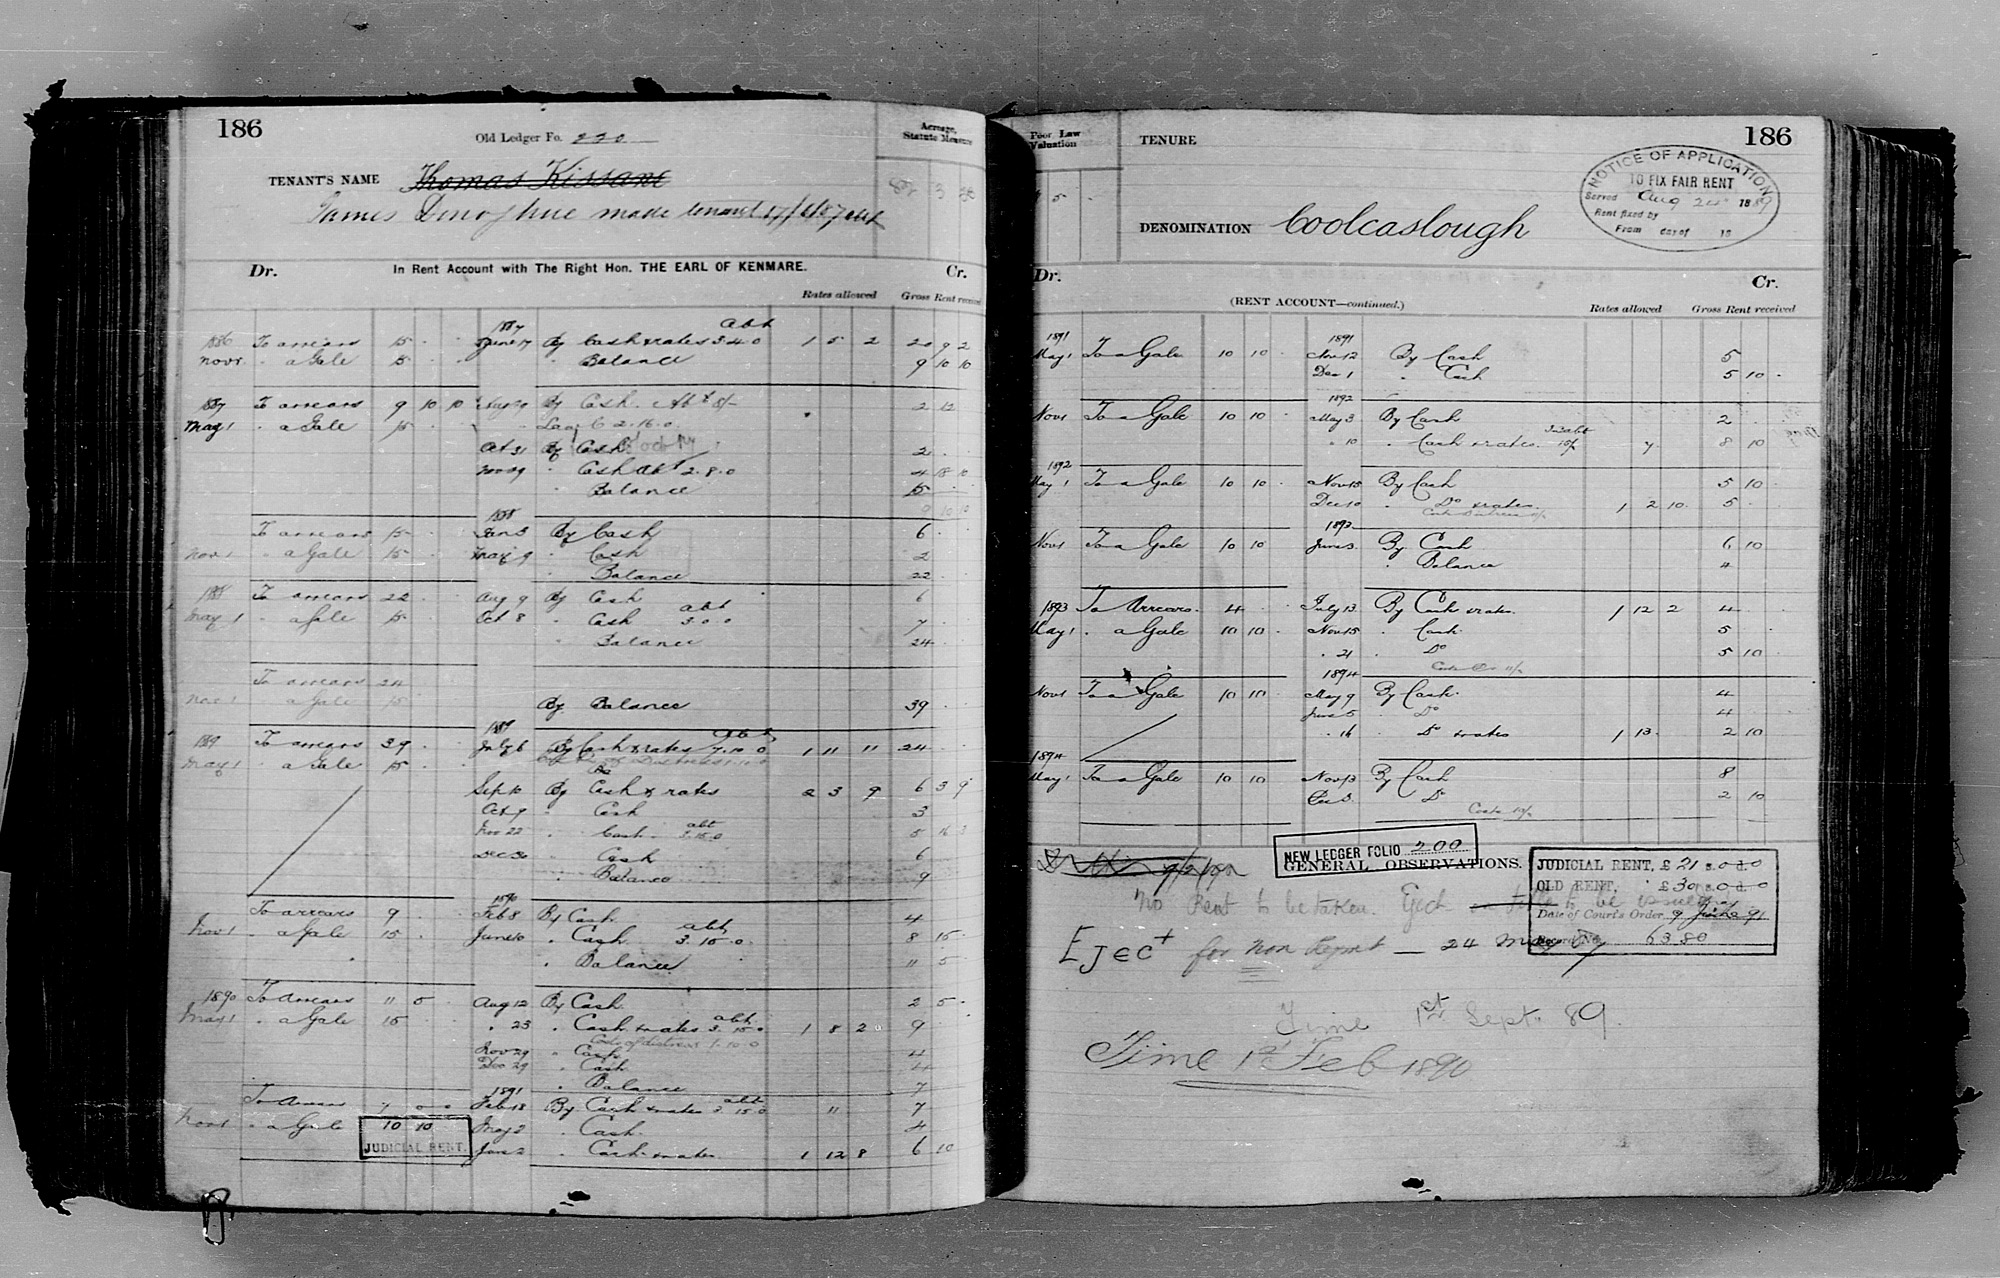 186
Old Ledger Fo. 220
Acreage, Statute Measure
TENANT'S NAME Thomas Kissane
James Donoghue made tenant 17/6/87
Dr. In Rent Account with The Right Hon. THE EARL OF KENMARE. Cr.
Rates allowed Gross Rent received
1887 abt
1886 To arrears 15 June 17 By Cash & rates 3.4.0 1 5 2 20 9 2
Novr. " a Gale 15 " Balance 9 10 10
1887 To arrears 9 10 10 Aug 29 By Cash Abt 8/- 2 12
May 1 " a Gale 15 2.16.0
Oct 31 By Cash 2
Nov 29 " Cash abt 2.8.0 4 18 10
" Balance 15
9 10 10
1888
To arrears 15 Jan 3 By Cash 6
Nov 1 " a Gale 15 May 9 " Cash 2
" Balance 22
1888 To arrears 22 Aug 9 By Cash 6
May 1 " a Gale 15 Oct 8 " Cash abt 3.0.0 7
" Balance 24
To arrears 24
Nov 1 " a Gale 15 By Balance 39
1889
1889 To arrears 39 July 6 By Cash & rates abt 7.10.0 1 11 11 24
May 1 " a Gale 15
Sept 10 By Cash & rates 2 3 9 6 3 9
Oct 9 " Cash 3
Nov 22 " Cash abt 3.15.0 5 16 3
Dec 30 " Cash 6
" Balance 9
1890
To arrears 9 Feb 8 By Cash 4
Nov 1 " a Gale 15 June 10 " Cash abt 3.15.0 8 15
" Balance 11 5
1890 To Arrears 11 5 Aug 12 By Cash 2 5
May 1 " a Gale 15 " 23 " Cash & rates abt 3.15.0 1 8 2 9
Costs of distress 1.10.0
Nov 29 " Cash 4
Dec 29 " Cash 4
" Balance 7
1891
To Arrears 7 0 0 Feb 18 By Cash & rates abt 3.15.0 11 7
Nov 1 " a Gale 10 10 May 2 " Cash 4
JUDICIAL RENT. June 2 " Cash & rates 1 12 8 6 10
186
Poor Law Valuation
TENURE
5
NOTICE OF APPLICATION
TO FIX FAIR RENT
Served Aug 24 1889
Rent fixed by
From day of 18
DENOMINATION Coolcaslough
Dr. Cr.
(RENT ACCOUNT—continued.) Rates allowed Gross Rent received
1891 1891
May 1 To a Gale 10 10 Nov 12 By Cash 5
Dec 1 " Cash 5 10
1892
Nov 1 To a Gale 10 10 May 3 By Cash 2
" 10 " Cash & rates 7 8 10
1892
May 1 To a Gale 10 10 Nov 15 By Cash 5 10
Dec 10 " Do & rates 1 2 10 5
1893
Nov 1 To a Gale 10 10 June 3 By Cash 6 10
" Balance 4
1893 To Arrears 4 July 13 By Cash & rates 1 12 2 4
May 1 " a Gale 10 10 Nov 15 " Cash 5
" 21 " Do 5 10
1894
Nov 1 To a Gale 10 10 May 9 By Cash 4
June 5 " Do 4
" 16 " Do & rates 1 13 2 10
1894
May 1 To a Gale 10 10 Nov 13 By Cash 8
Dec 3 " Do 2 10
Costs 10/-
NEW LEDGER FOLIO 200
GENERAL OBSERVATIONS.
JUDICIAL RENT, £21 s. 0 d. 0
OLD RENT, £30 s. 0 d. 0
Date of Court's Order, 9 June 91
Record No. 6380
No Rent to be taken. Eject on title to be issued
Eject for non paymt — 24 May
Time 1st Sept. 89.
Time 1st Feb 1890